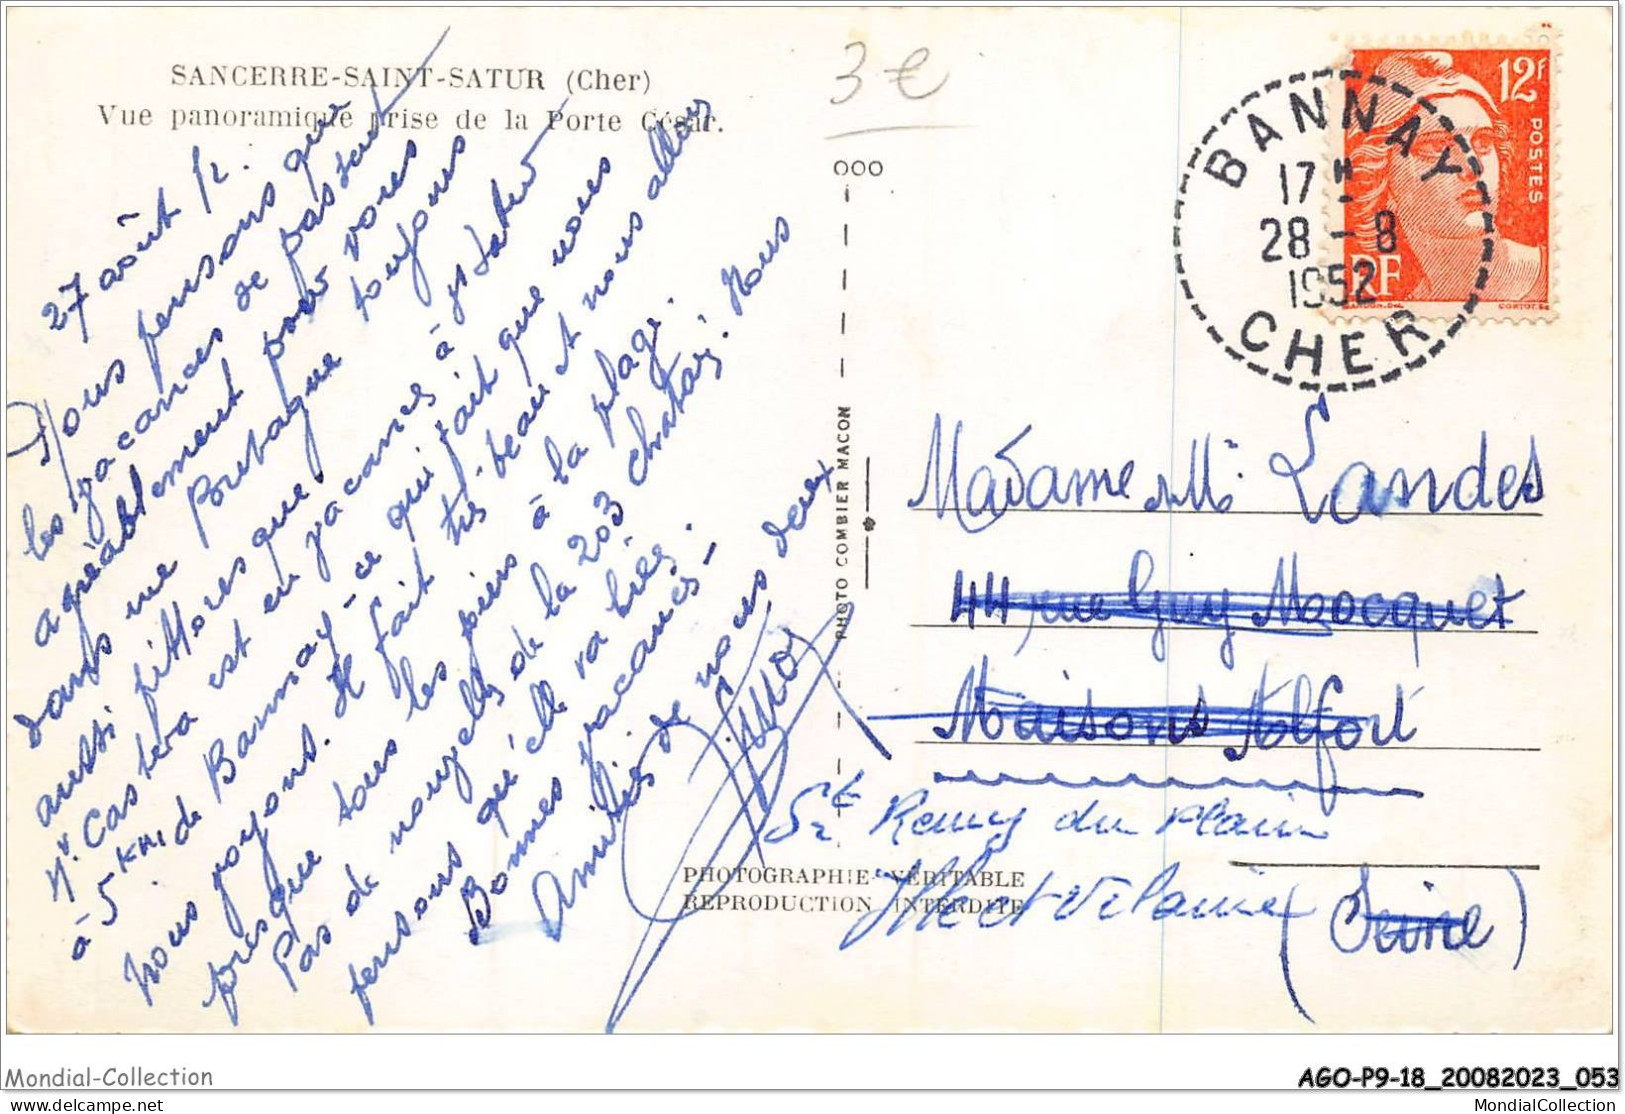 SANCERRE-SAINT-SATUR (Cher)
Vue panoramique prise de la Porte César.
3€
27 août 52.
Nous pensons que
les vacances se passent
agréablement pour vous
dans une Bretagne toujours
aussi pittoresque.
Mr Castera est en vacances à
à 5 km de Bannay - ce qui fait que nous
nous voyons. Il fait très beau et nous allons
presque tous les jours à la plage.
Pas de nouvelles de la 203 Nous
pensons qu'elle va
Bonnes vacances -
Amitiés de nous deux
OOO
PHOTO COMBIER MACON
PHOTOGRAPHIE VÉRITABLE
REPRODUCTION INTERDITE
12F
POSTES
RF
BANNAY
17H
28-8
1952
CHER
Madame M. Landes
44, rue Guy Moocquet
Maisons Alfort
St Remy du Plain
Ille et Vilaine
(Seine)
Mondial-Collection
AGO-P9-18_20082023_053
www.delcampe.net
MondialCollection